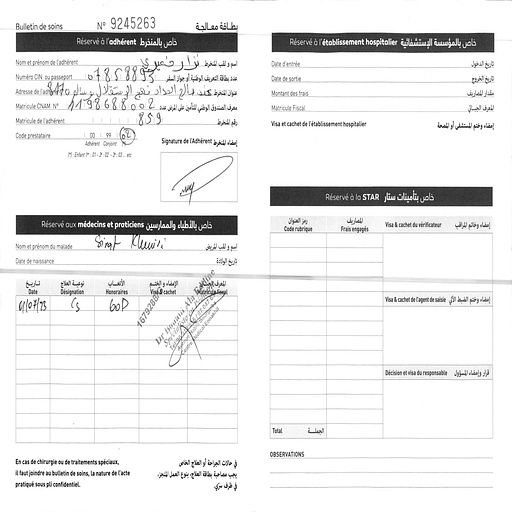 Bulletin de soins N° 9245263 بطاقة معالجة
Réservé à l'adhérent خاص بالمنخرط
Nom et prénom de l'adhérent نزار خميري اسم و لقب المنخرط
Numéro CIN ou passeport 07858893 عدد بطاقة التعريف الوطنية أو جواز السفر
Adresse de l'adhérent عنوان المنخرط
Matricule CNAM N° 1198688002 معرف الصندوق الوطني للتأمين على المرض عدد
Matricule de l'adhérent 859 رقم المنخرط
Code prestataire 00 99 02
Adhérent Conjoint
Signature de l'Adhérent إمضاء المنخرط
Réservé aux médecins et praticiens خاص بالأطباء والممارسين
Nom et prénom du malade اسم و لقب المريض
Date de naissance تاريخ الولادة
تاريخ نوعية العلاج الأتعاب الإمضاء و الختم المعرف الجبائي
Date Désignation Honoraires Visa & cachet Matricule fiscal
01/07/23 Cs 60D
En cas de chirurgie ou de traitements spéciaux,
il faut joindre au bulletin de soins, la nature de l'acte
pratiqué sous pli confidentiel.
في حالات الجراحة أو العلاج الخاص
يجب مصاحبة بطاقة العلاج، بنوع العمل المنجز،
في ظرف سري.
Réservé à l'établissement hospitalier خاص بالمؤسسة الإستشفائية
Date d'entrée تاريخ الدخول
Date de sortie تاريخ الخروج
Montant des frais مقدار المصاريف
Matricule Fiscal المعرف الجبائي
Visa et cachet de l'établissement hospitalier إمضاء وختم المستشفى أو المصحة
Réservé à la STAR خاص بتأمينات ستار
رمز العنوان المصاريف
Code rubrique Frais engagés
Visa & cachet du vérificateur إمضاء وخاتم المراقب
Visa & cachet de l'agent de saisie إمضاء وختم الضبط الآلي
Décision et visa du responsable قرار وإمضاء المسؤول
Total الجملة
OBSERVATIONS